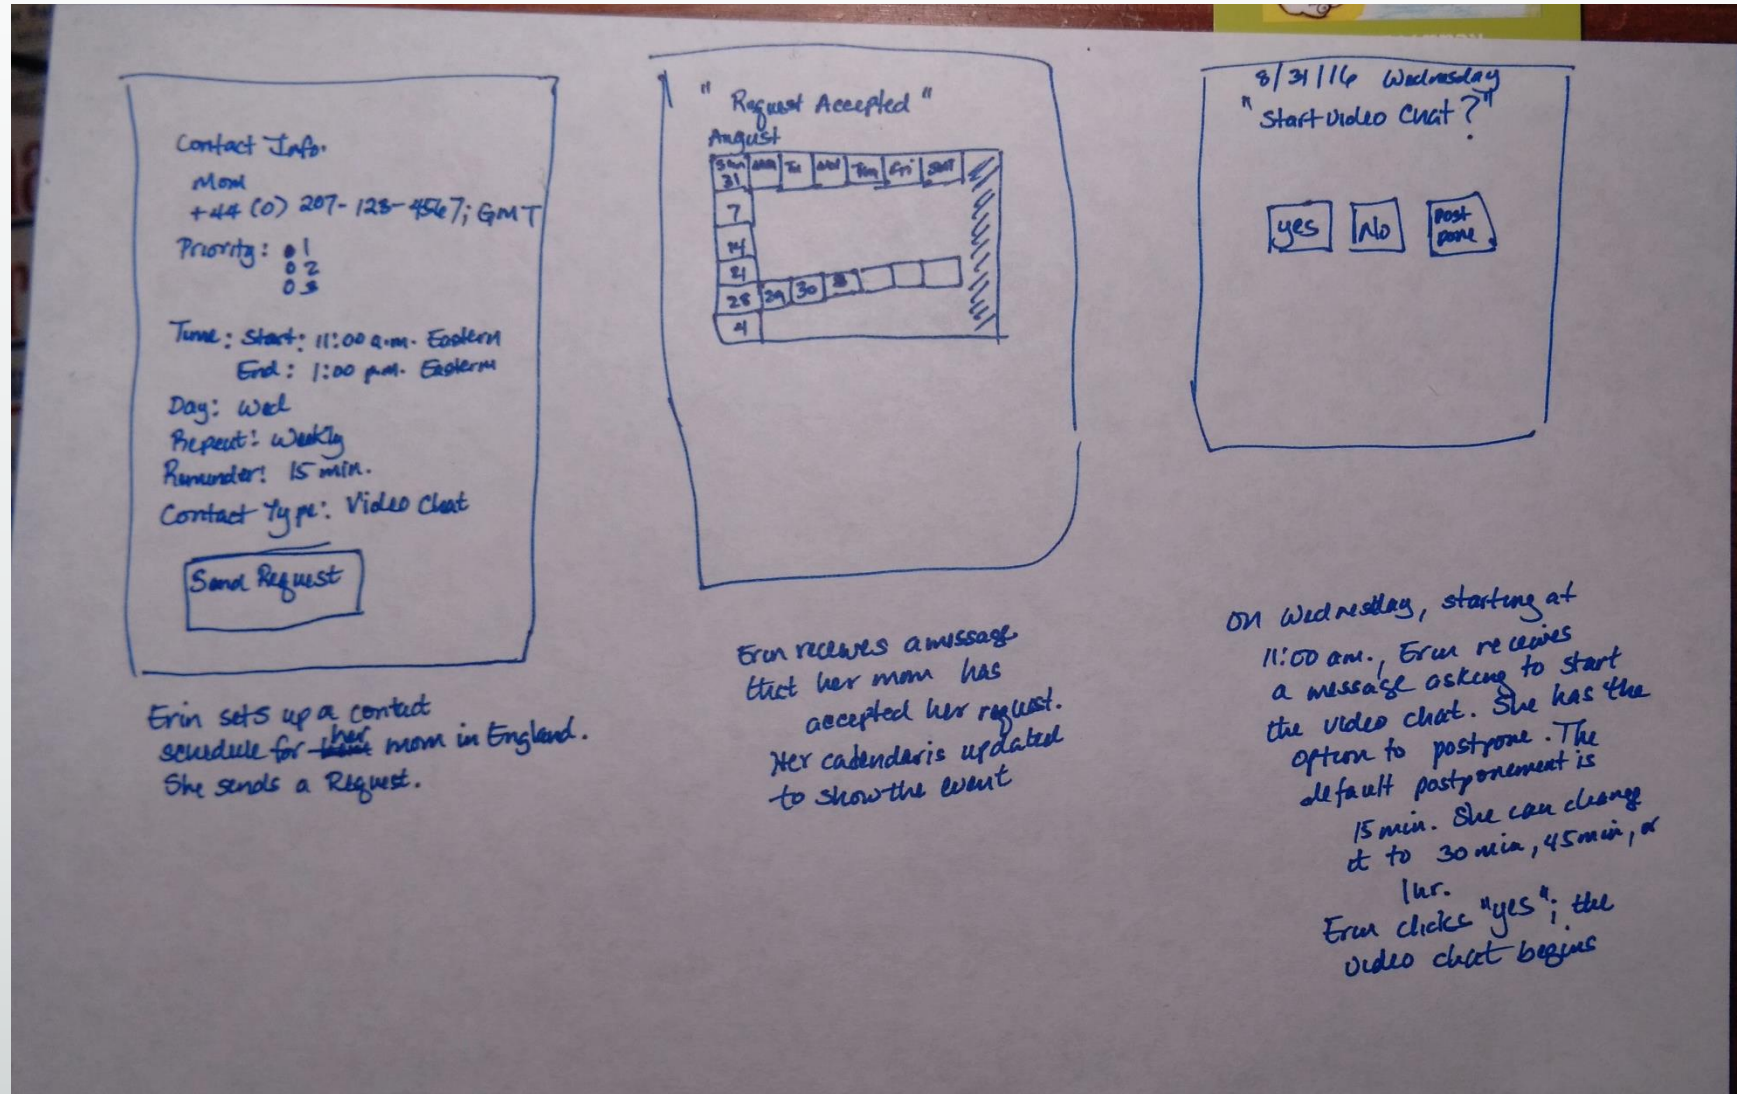 Contact Info.
Mom
+44 (0) 207-123-4567; GMT
Priority: 1
2
3
Time: Start: 11:00 a.m. Eastern
End: 1:00 p.m. Eastern
Day: Wed
Repeat: Weekly
Reminder: 15 min.
Contact Type: Video Chat
Send Request
Erin sets up a contact
schedule for her mom in England.
She sends a Request.
"Request Accepted"
August
Sun Mon Tu Wed Thu Fri Sat
31
7
14
21
28 29 30
4
Erin receives a message
that her mom has
accepted her request.
Her calendar is updated
to show the event
8/31/16 Wednesday
"Start video Chat?"
yes No Post
pone
On Wednesday, starting at
11:00 am., Erin receives
a message asking to start
the video chat. She has the
option to postpone. The
default postponement is
15 min. She can change
it to 30 min, 45 min, or
1hr.
Erin clicks "yes"; the
video chat begins